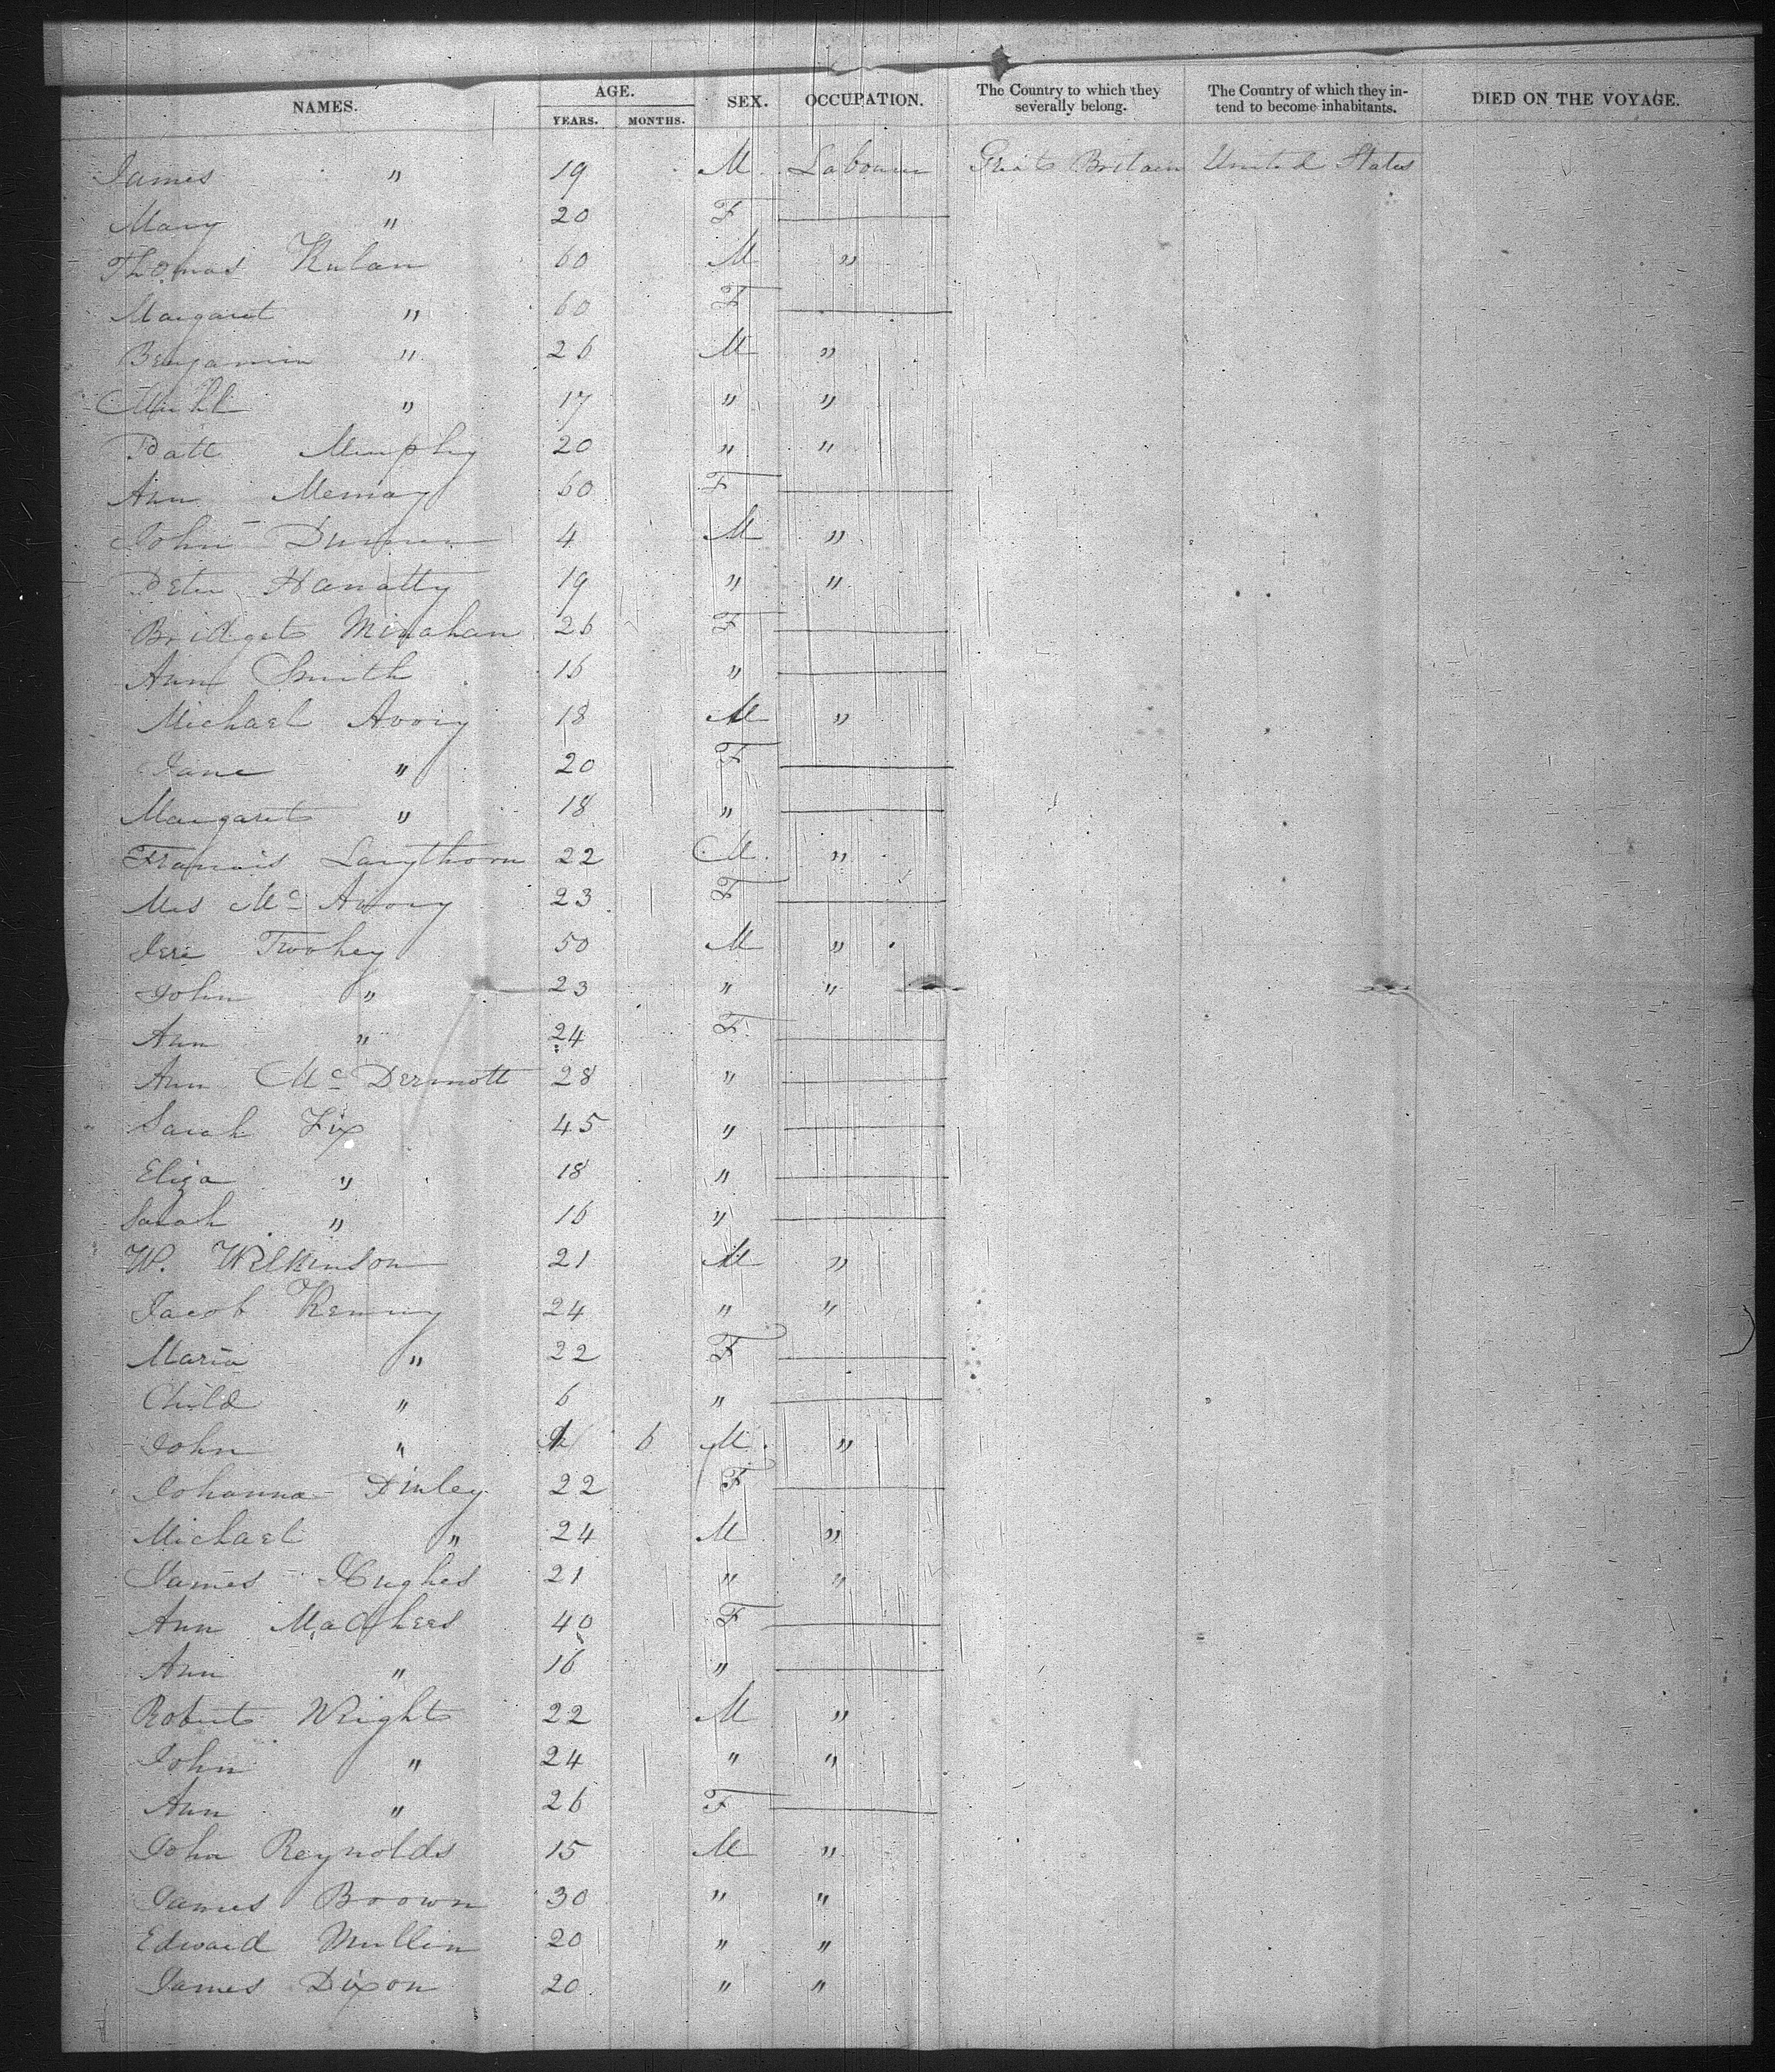 NAMES. AGE. SEX. OCCUPATION. The Country to which they severally belong. The Country of which they intend to become inhabitants. DIED ON THE VOYAGE.
YEARS. MONTHS.
James " 19 M Labourer Great Britain United States
Mary " 20 F
Thomas 60 M "
Margaret " 60 F
Benjamin " 26 M "
Michl " 17 " "
Patt Murphy 20 " "
Ann 60 F
John 4 M "
Peter Hanatty 19 " "
Bridget Minahan 26 F
Ann Smith 16 "
Michael Avory 18 M "
Jane " 20 F
Margaret " 18 "
Francis Langthorn 22 M "
Mrs Mc Avory 23 F
Jere Twohey 50 M "
John " 23 " "
Ann " 24 F
Ann Mc Dermott 28 "
Sarah 45 "
Eliza " 18 "
Sarah " 16 "
W. Wilkinson 21 M "
Jacob Kenny 24 " "
Maria " 22 F
Child " 6 "
John " 1 6 M "
Johanna Finley 22 F
Michael " 24 M "
James Hughes 21 " "
Ann 40 F
Ann " 16 "
Robert Wright 22 M "
John " 24 " "
Ann " 26 F
John Reynolds 15 M "
James Brown 30 " "
Edward Mullin 20 " "
James Dixon 20 " "